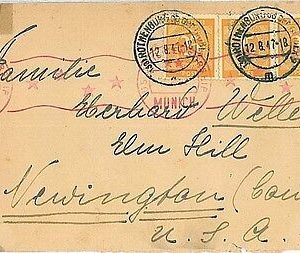 ROTHENBURG ob der Tauber
12.8.47-12
ROTHENBURG ob der Tauber
12.8.47-12
Familie
MUNICH
Eberhard Welle
Elm Hill
Newington (Con
U.S.A.